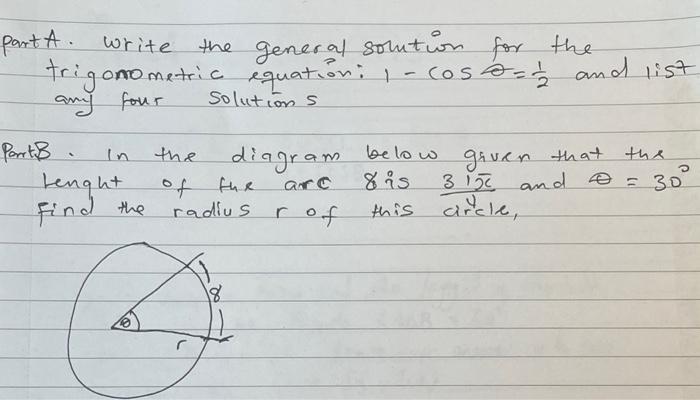 Part A. Write the general solution for the
trigonometric equation: 1 - cos θ = 1/2 and list
any four solutions
Part B. In the diagram below given that the
Lenght of the arc 8 is 31π/4 and θ = 30°
Find the radius r of this circle,
8
θ
r